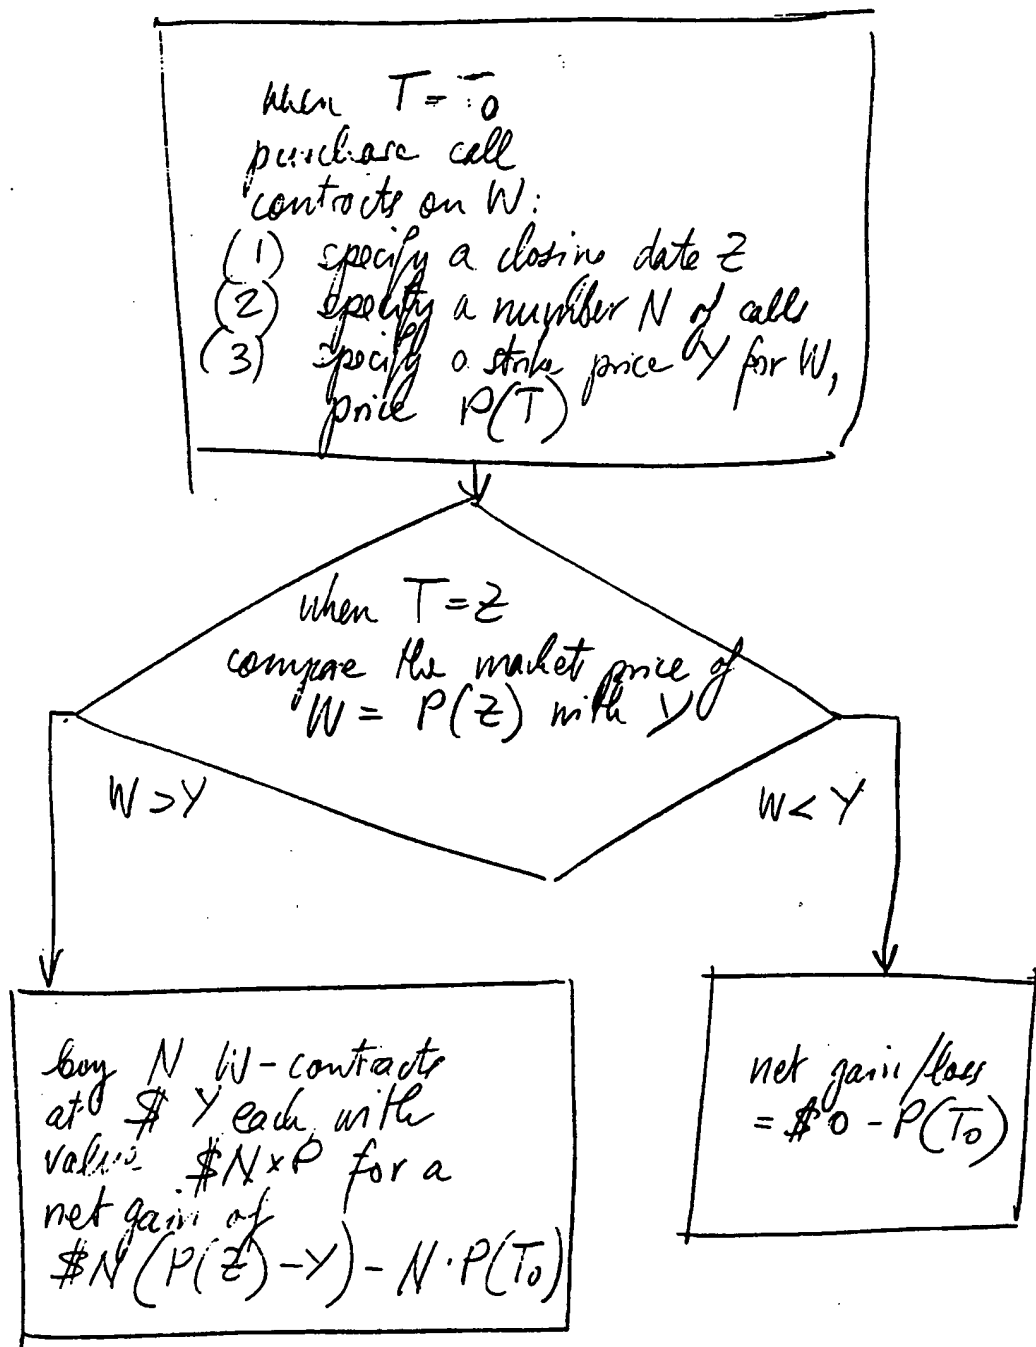 when T = T0
purchase call
contracts on W:
(1) specify a closing date Z
(2) specify a number N of calls
(3) specify a strike price Y for W,
price P(T)
when T = Z
compare the market price of
W = P(Z) with Y
W > Y
W < Y
buy N W-contracts
at $ Y each, with
value $N×P for a
net gain of
$N(P(Z)-Y) - N·P(T0)
net gain/loss
= $0 - P(T0)